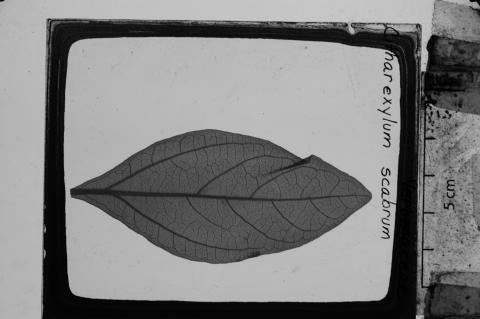 Citharexylum scabrum
5 cm